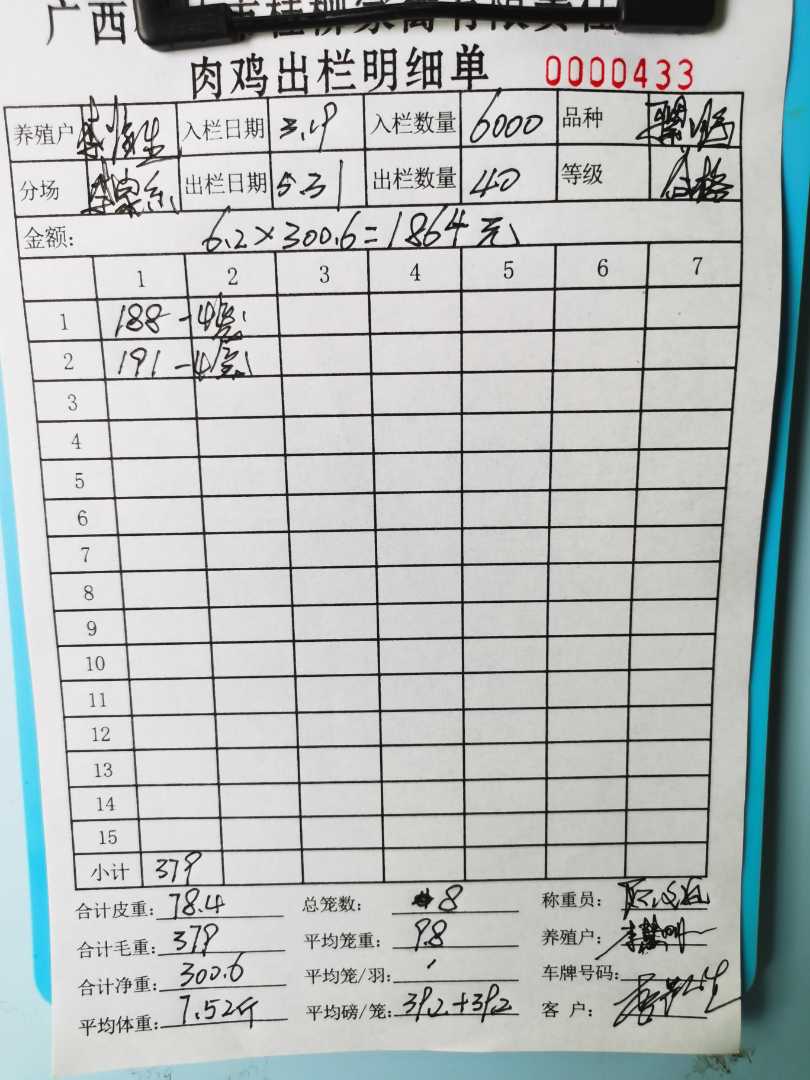 广西 市桂柳家禽有限责任
肉鸡出栏明细单 0000433
养殖户 入栏日期 3.19 入栏数量 6000 品种
分场 出栏日期 5.31 出栏数量 40 等级 合格
金额: 6.2×300.6=1864元
1 2 3 4 5 6 7
1 188-4笼
2 191-4笼
3
4
5
6
7
8
9
10
11
12
13
14
15
小计 379
合计皮重: 78.4 总笼数: 8 称重员:
合计毛重: 379 平均笼重: 9.8 养殖户:
合计净重: 300.6 平均笼/羽: 车牌号码:
平均体重: 7.52斤 平均磅/笼: 39.2+39.2 客 户: